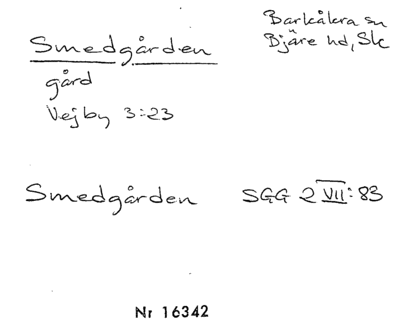 Smedgården
Barkåkra sn
Bjäre hd, Sk
gård
Vejby 3:23
Smedgården SGG 2 VII: 83
Nr 16342